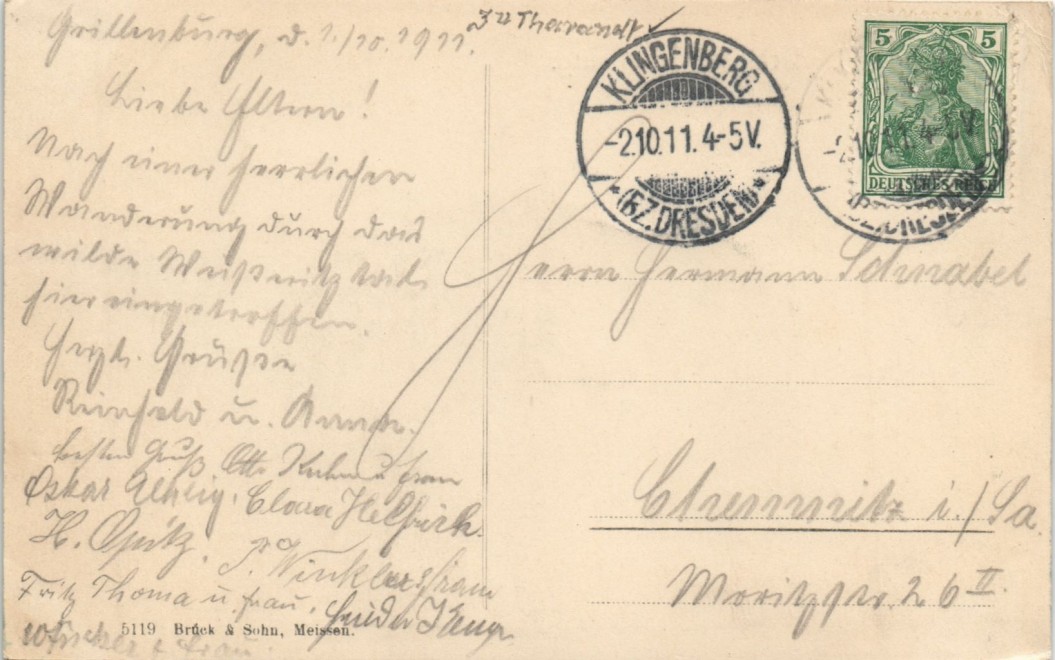 Grillenburg, d. 1./10. 1911.
Zu Tharandt
Liebe Eltern!
Nach einer herrlichen
Wanderung durch das
wilde Weißeritztal
hier eingetroffen.
Herzl. Grüsse
Reinhold u. Anna.
besten Gruß Otto Kuhn u Frau
Oskar Clara Helfrich.
H. Opitz. P. Winkler & Frau
Fritz Thoma u. Frau.
& Frau.
5119 Brück & Sohn, Meissen.
KLINGENBERG
-2.10.11. 4-5V.
* (BZ. DRESDEN) *
5 5
DEUTSCHES REICH
Herrn Hermann Schnabel
Chemnitz i./Sa.
Moritzstr. 26 II